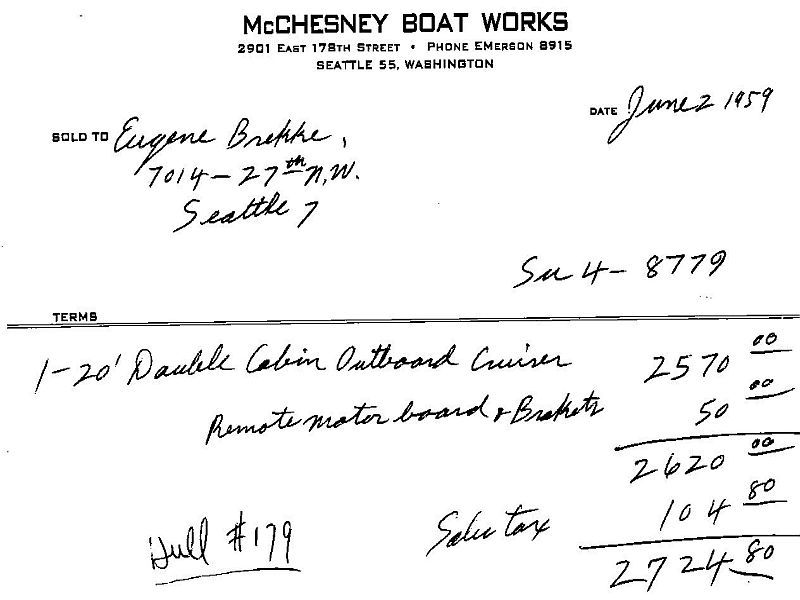 McCHESNEY BOAT WORKS
2901 EAST 178TH STREET • PHONE EMERSON 8915
SEATTLE 55, WASHINGTON
DATE June 2 1959
SOLD TO Eugene Brekke,
7014 - 27th N.W.
Seattle 7
Su 4 - 8779
TERMS
1 - 20' Double Cabin Outboard Cruiser 2570 00
Remote motor board & Brakets 50 00
2620 00
Sales tax 104 80
Hull #179
2724 80